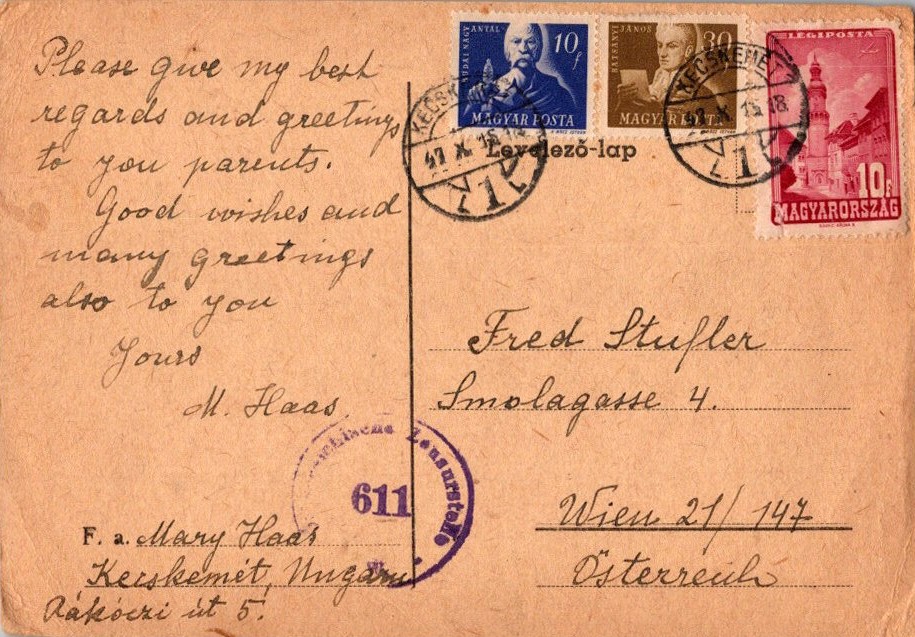 Please give my best
regards and greetings
to you parents.
Good wishes and
many greetings
also to you
Yours
M. Haas.
F. a. Mary Haas
Kecskemét, Ungarn
Rákóczi út 5.
BUDAI NAGY ANTAL
10 f
MAGYAR POSTA
BATSÁNYI JÁNOS
30
MAGYAR POSTA
LÉGIPOSTA
10f
MAGYARORSZÁG
KECSKEMÉT
47 X. 15. 18
1
KECSKEMÉT
47 X. 15. 18
1
Levelező-lap
Fred Stufler
Smolagasse 4.
Wien 21/147
Österreich
Zensurstelle
611